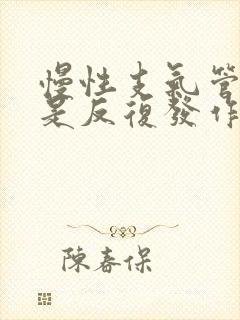 慢性支氣管
是反復發作
陳春保